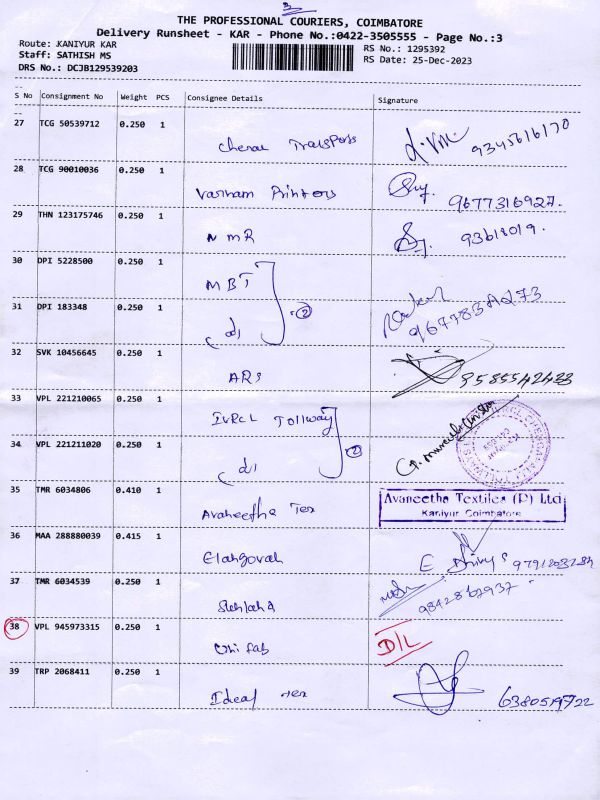 3
THE PROFESSIONAL COURIERS, COIMBATORE
Delivery Runsheet - KAR - Phone No.:0422-3505555 - Page No.:3
Route: KANIYUR KAR
RS No.: 1295392
Staff: SATHISH MS
RS Date: 25-Dec-2023
DRS No.: DCJB129539203
S No Consignment No Weight PCS Consignee Details Signature
27 TCG 50539712 0.250 1
Transports 9345616170
28 TCG 90010036 0.250 1
Varnam Printers 9677316927.
29 THN 123175746 0.250 1
NMR 93618019.
30 DPI 5228500 0.250 1
MBT
31 DPI 183348 0.250 1
(d) 2
32 SVK 10456645 0.250 1
ARS 8585542433
33 VPL 221210065 0.250 1
IVRCL Tollway
34 VPL 221211020 0.250 1
(d) 2
35 TMR 6034806 0.410 1
Avaneetha Tex
Avaneetha Textiles (P) Ltd
Kaniyur Coimbatore
36 MAA 288880039 0.415 1
Elangovan
37 TMR 6034539 0.250 1
38 VPL 945973315 0.250 1
Uni fab D/L
39 TRP 2068411 0.250 1
Ideal Tex 6380519722